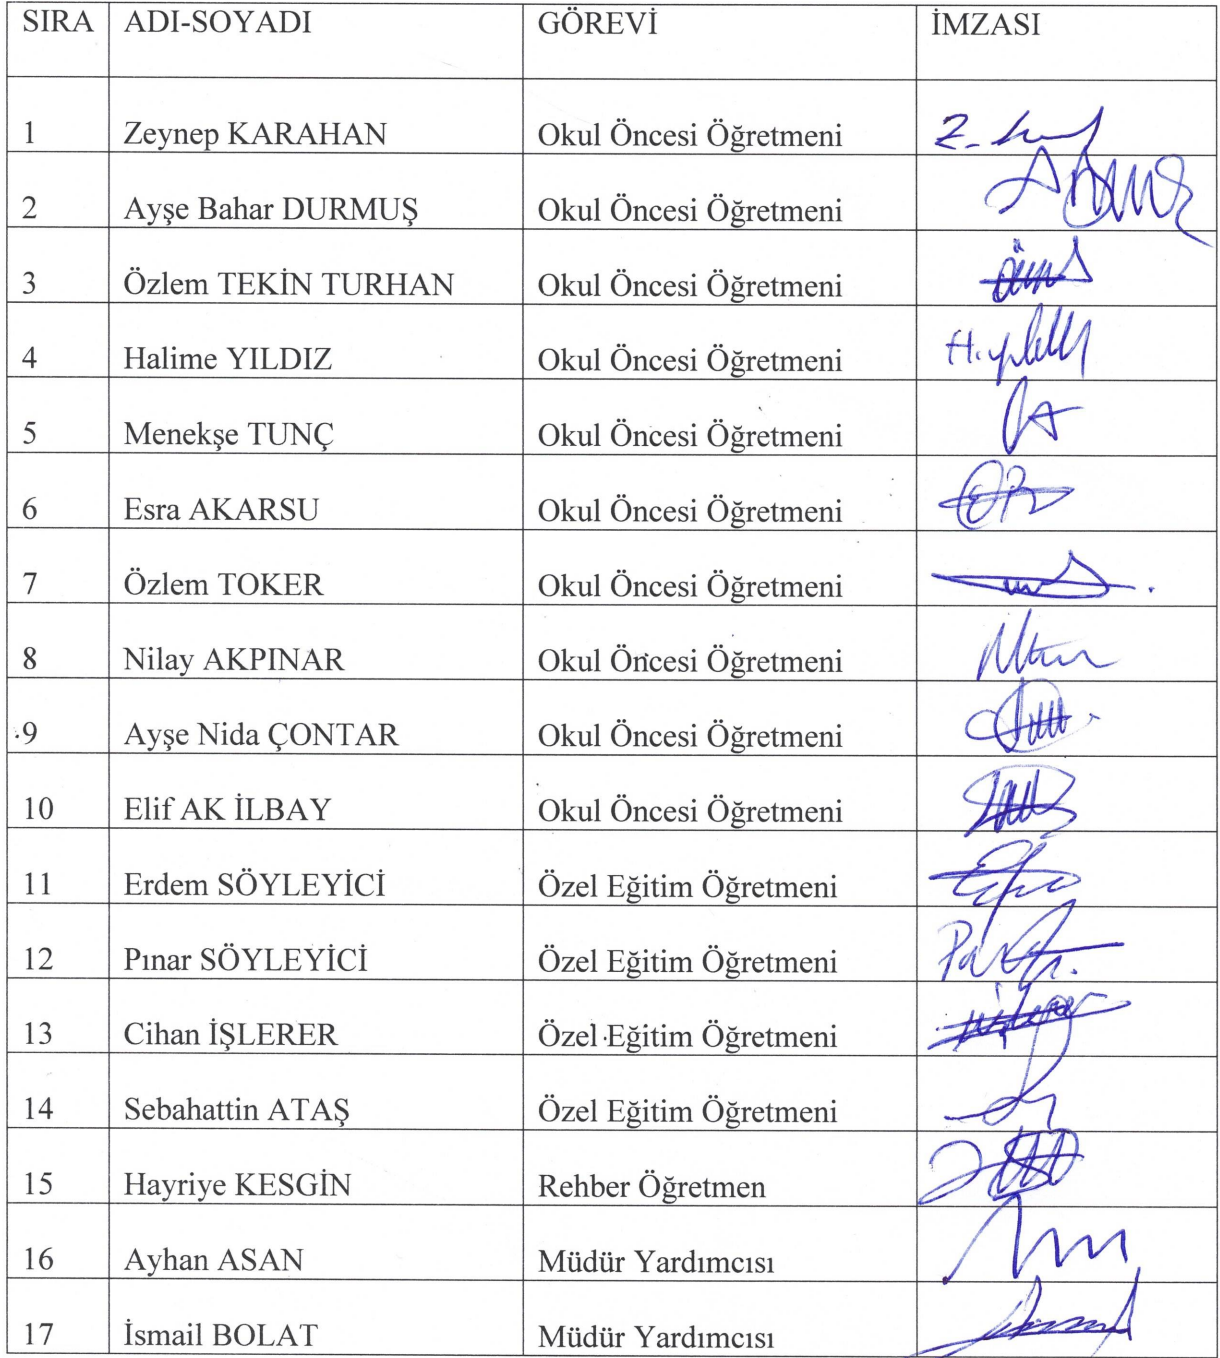 SIRA ADI-SOYADI GÖREVİ İMZASI
1 Zeynep KARAHAN Okul Öncesi Öğretmeni
2 Ayşe Bahar DURMUŞ Okul Öncesi Öğretmeni
3 Özlem TEKİN TURHAN Okul Öncesi Öğretmeni
4 Halime YILDIZ Okul Öncesi Öğretmeni
5 Menekşe TUNÇ Okul Öncesi Öğretmeni
6 Esra AKARSU Okul Öncesi Öğretmeni
7 Özlem TOKER Okul Öncesi Öğretmeni
8 Nilay AKPINAR Okul Öncesi Öğretmeni
9 Ayşe Nida ÇONTAR Okul Öncesi Öğretmeni
10 Elif AK İLBAY Okul Öncesi Öğretmeni
11 Erdem SÖYLEYİCİ Özel Eğitim Öğretmeni
12 Pınar SÖYLEYİCİ Özel Eğitim Öğretmeni
13 Cihan İŞLERER Özel Eğitim Öğretmeni
14 Sebahattin ATAŞ Özel Eğitim Öğretmeni
15 Hayriye KESGİN Rehber Öğretmen
16 Ayhan ASAN Müdür Yardımcısı
17 İsmail BOLAT Müdür Yardımcısı